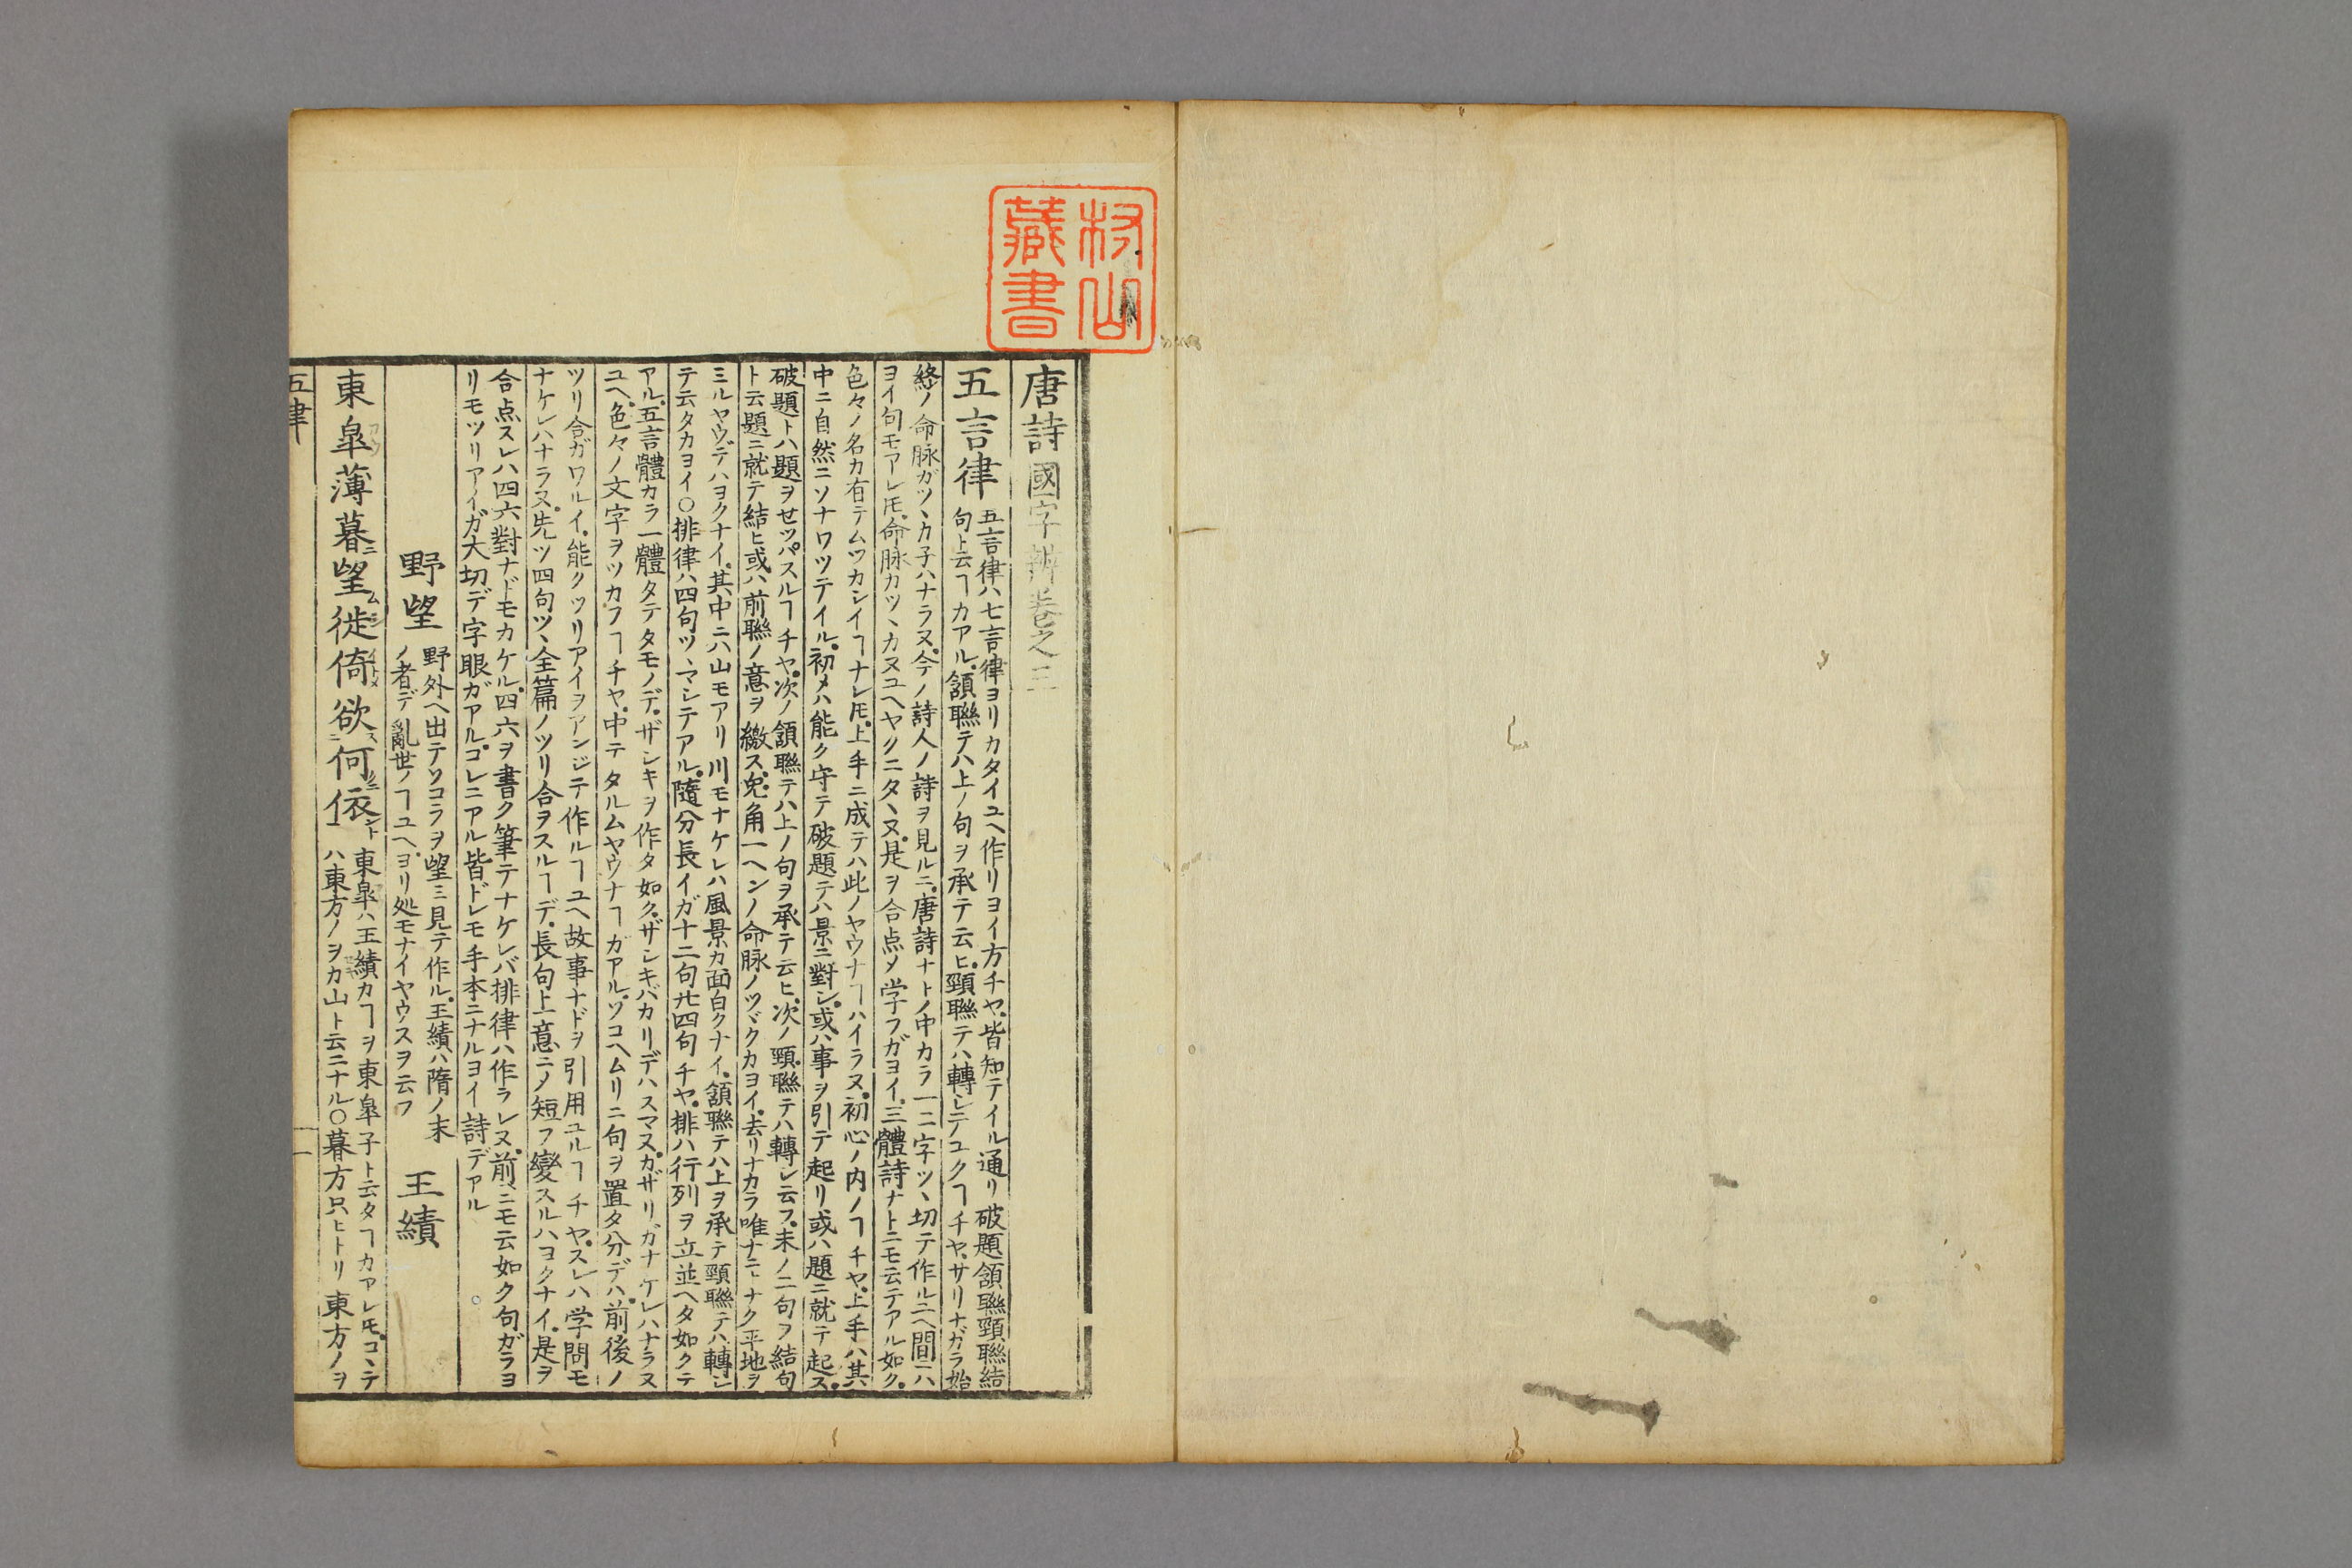 村山
藏書
唐詩國字辨卷之三
五言律
五言律ハ七言律ヨリカタイユヘ作リヨイ方チヤ皆知テイル通リ破題頷聯頸聯結
句ト云ヿカアル頷聯テハ上ノ句ヲ承テ云ヒ頸聯テハ轉シテユクヿチヤサリナガラ始
終ノ命脉ガツヽカ子ハナラヌ今ノ詩人ノ詩ヲ見ルニ唐詩ナトノ中カラ一二字ツヽ切テ作ルユヘ間ニハ
ヨイ句モアレ𪜈命脉カツヽカヌユヘヤクニタヽヌ是ヲ合点メ学フガヨイ三體詩ナトニモ云テアル如ク
色々ノ名カ有テムツカシイヿナレ𪜈上手ニ成テハ此ノヤウナヿハイラヌ初心ノ内ノヿチヤ上手ハ其
中ニ自然ニソナワツテイル初メハ能ク守テ破題テハ景ニ對シ或ハ事ヲ引テ起リ或ハ題ニ就テ起ス
破題トハ題ヲせツパスルヿチヤ次ノ頷聯テハ上ノ句ヲ承テ云ヒ次ノ頸聯テハ轉シ云フ末ノ二句ヲ結句
ト云題ニ就テ結ヒ或ハ前聯ノ意ヲ繳ス兎角一ヘンノ命脉ノツヾクカヨイ去リナカラ唯ナニヽナク平地ヲ
ミルヤウデハヨクナイ其中ニハ山モアリ川モナケレハ風景カ面白クナイ頷聯テハ上ヲ承テ頸聯テハ轉シ
テ云タカヨイ○排律ハ四句ツヽマシテアル隨分長イガ十二句廿四句チヤ排ハ行列ヲ立並ヘタ如クテ
アル五言體カラ一體タテタモノデザシキヲ作タ如クザシキバカリデハスマヌカザリガナケレハナラヌ
ユヘ色々ノ文字ヲツカフヿチヤ中テタルムヤウナヿガアルソコヘムリニ句ヲ置タ分デハ前後ノ
ツリ合ガワルイ能クツリアイヲアンジテ作ルヿユヘ故事ナドヲ引用ユルヿチヤスレハ学問モ
ナケレハナラヌ先ツ四句ツヽ全篇ノツリ合ヲスルヿデ長句上意ニメ短フ變スルハヨクナイ是ヲ
合点スレハ四六對ナドモカケル四六ヲ書ク筆テナケレバ排律ハ作ラレヌ前ニモ云如ク句ガラヨ
リモツリアイガ大切デ字眼ガアルコレニアル皆ドレモ手本ニナルヨイ詩デアル
野望
野外ヘ出テソコラヲ望ミ見テ作ル王績ハ隋ノ末
ノ者デ亂世ノヿユヘヨリ処モナイヤウスヲ云フ
王績
東皐薄暮望徙倚欲何依
東皐ハ王績カヿヲ東皐子ト云タヿカアレ𪜈コヽテ
ハ東方ノヲカ山ト云ニナル○暮方只ヒトリ東方ノヲ
五律
一